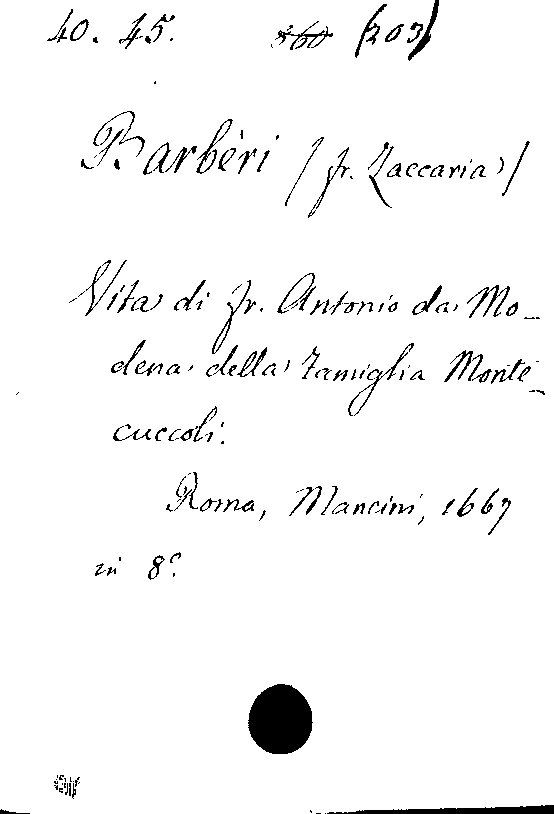 40. 45. 860 (203)
Barbèri (fr. Zaccaria)
Vita di fr. Antonio da Mo-
dena della famiglia Monte-
cuccoli.
Roma, Mancini, 1667
in 8º.